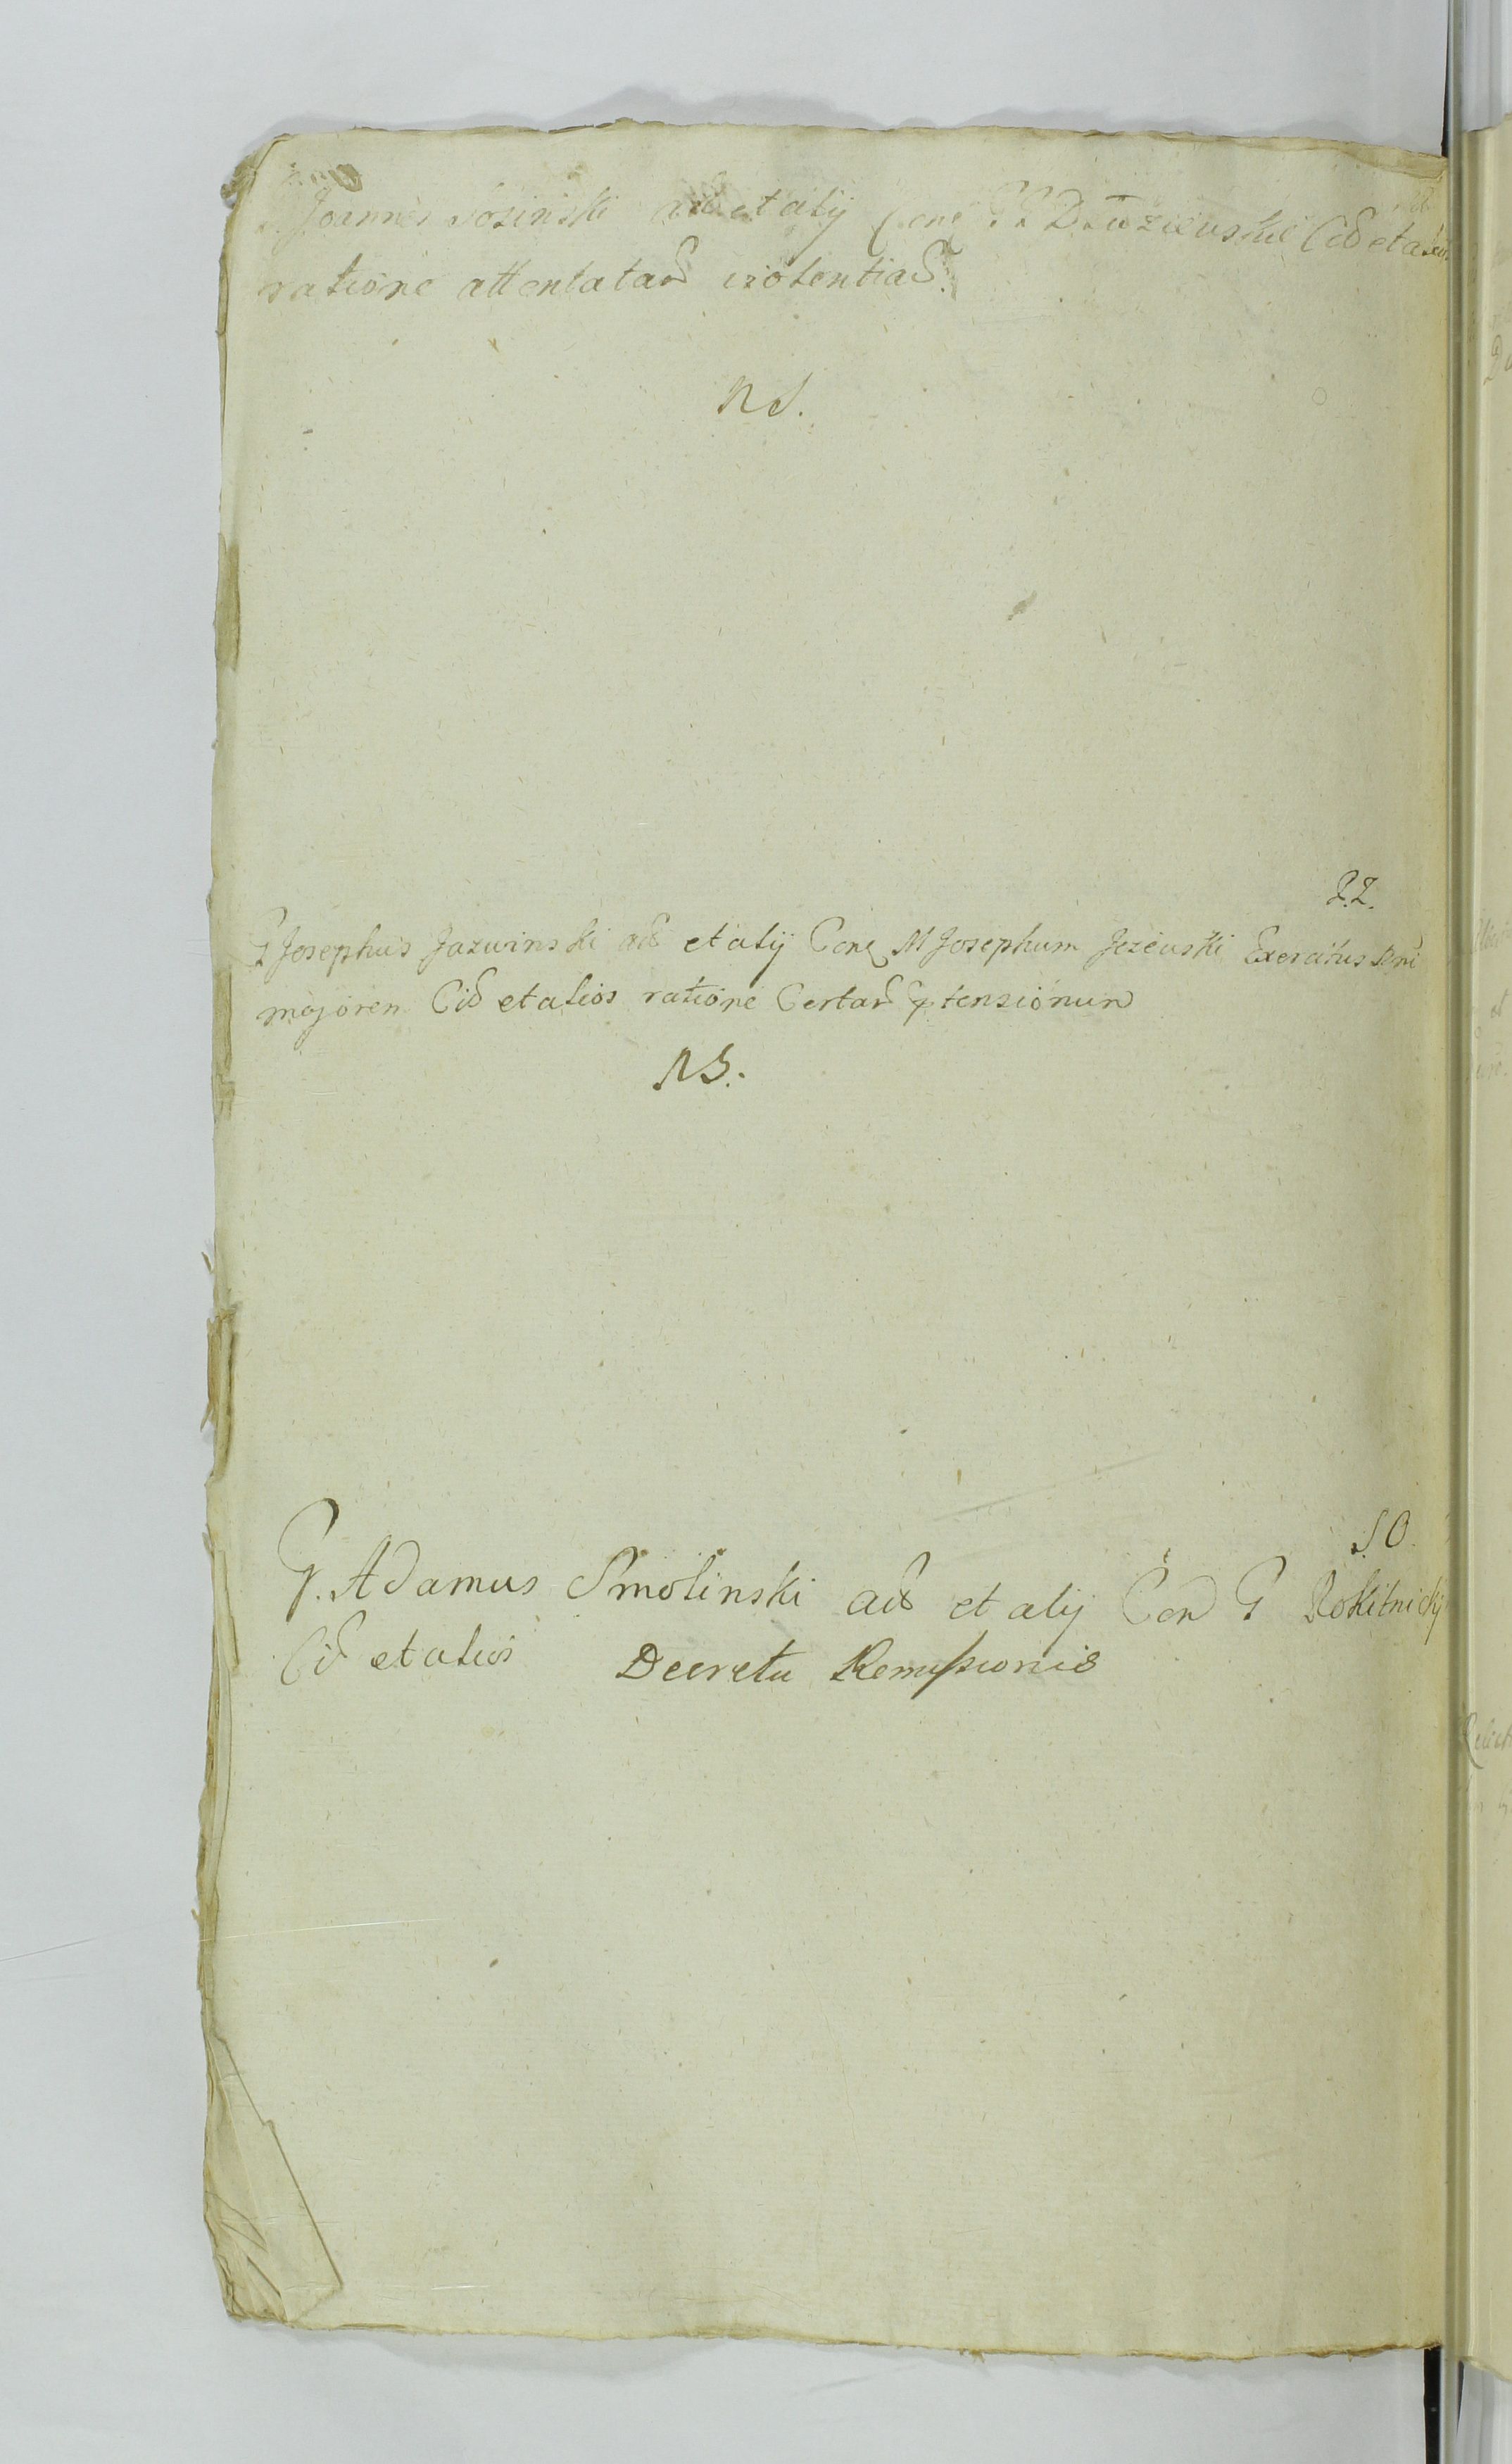 Joannes Sosinski act et alij Cone GG Dłuziewskie Cit et alios
ratione attentatar violentiar.
NS.
J.Z.
G Josephus Jazwinski act et alij Cone M Josephum Jeżewski Exercitus Regni
majorem Cit et alios ratione Certar Prtensionum
NS.
S.O.
G. Adamus Smolinski act et alij Con G Rokitnicki
Cit et alios Decretu Remissionis